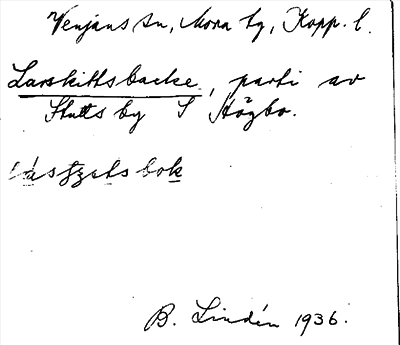 Venjans sn, Mora tg, Kopp. l.
Larskittsbacke, parti av
Stutts by S Högbo.
B. Lindén 1936.